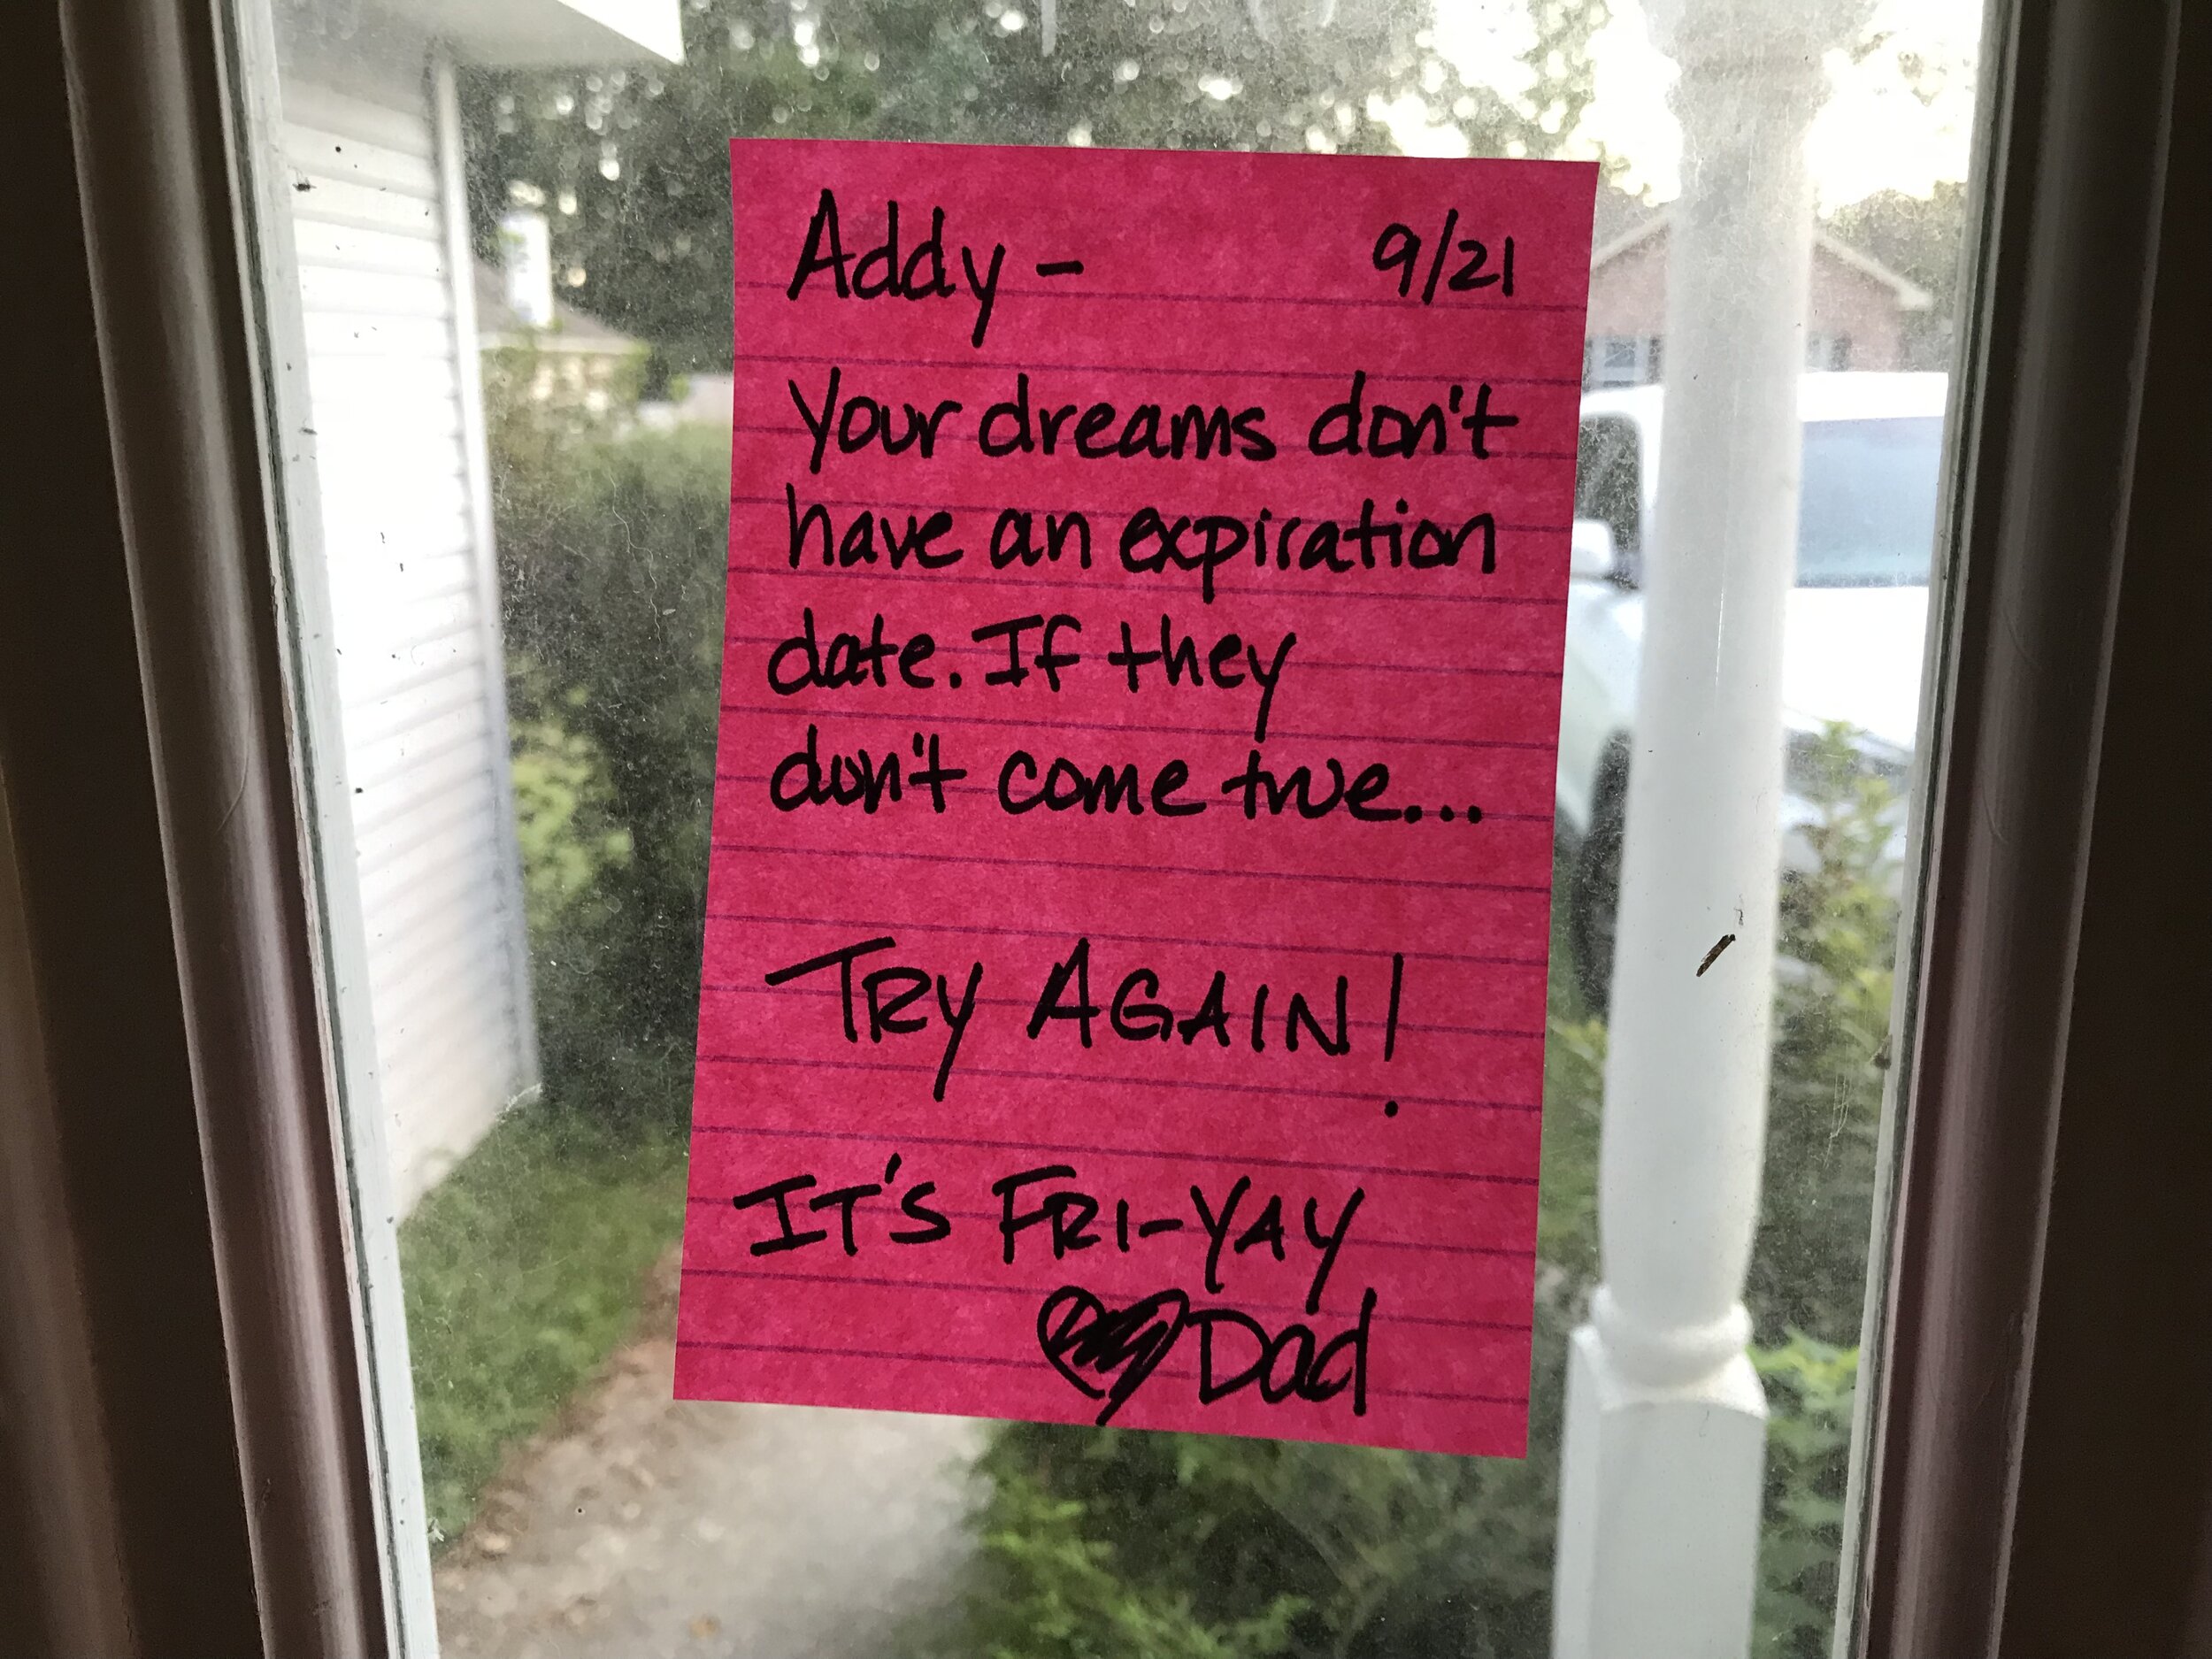 Addy - 9/21
Your dreams don't
have an expiration
date. If they
don't come true...
TRY AGAIN!
IT'S FRI-YAY
Dad